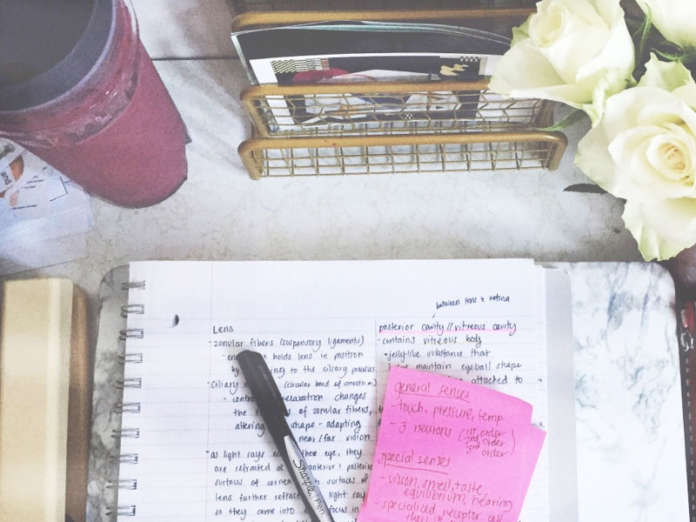 between lens & retina
Lens
- zonular fibers (suspensory ligaments)
- holds lens in position
by to the ciliary process
- ciliary (circular band of
- relaxation changes
the of zonular fibers,
altering shape - adapting
near/far vision
*as light rays the eye, they
are refracted @ anterior & posterior
surfaces of surfaces of
lens further light rays
so they come into focus
posterior cavity // vitreous cavity
- contains vitreous body
- jellylike substance that
maintain eyeball shape
attached to
general senses
- touch, pressure, temp
- 3 neurons (1st order
2nd order
3rd order)
special senses
- vision, smell, taste,
equilibrium, hearing
- specialized receptor
Sharpie Pen